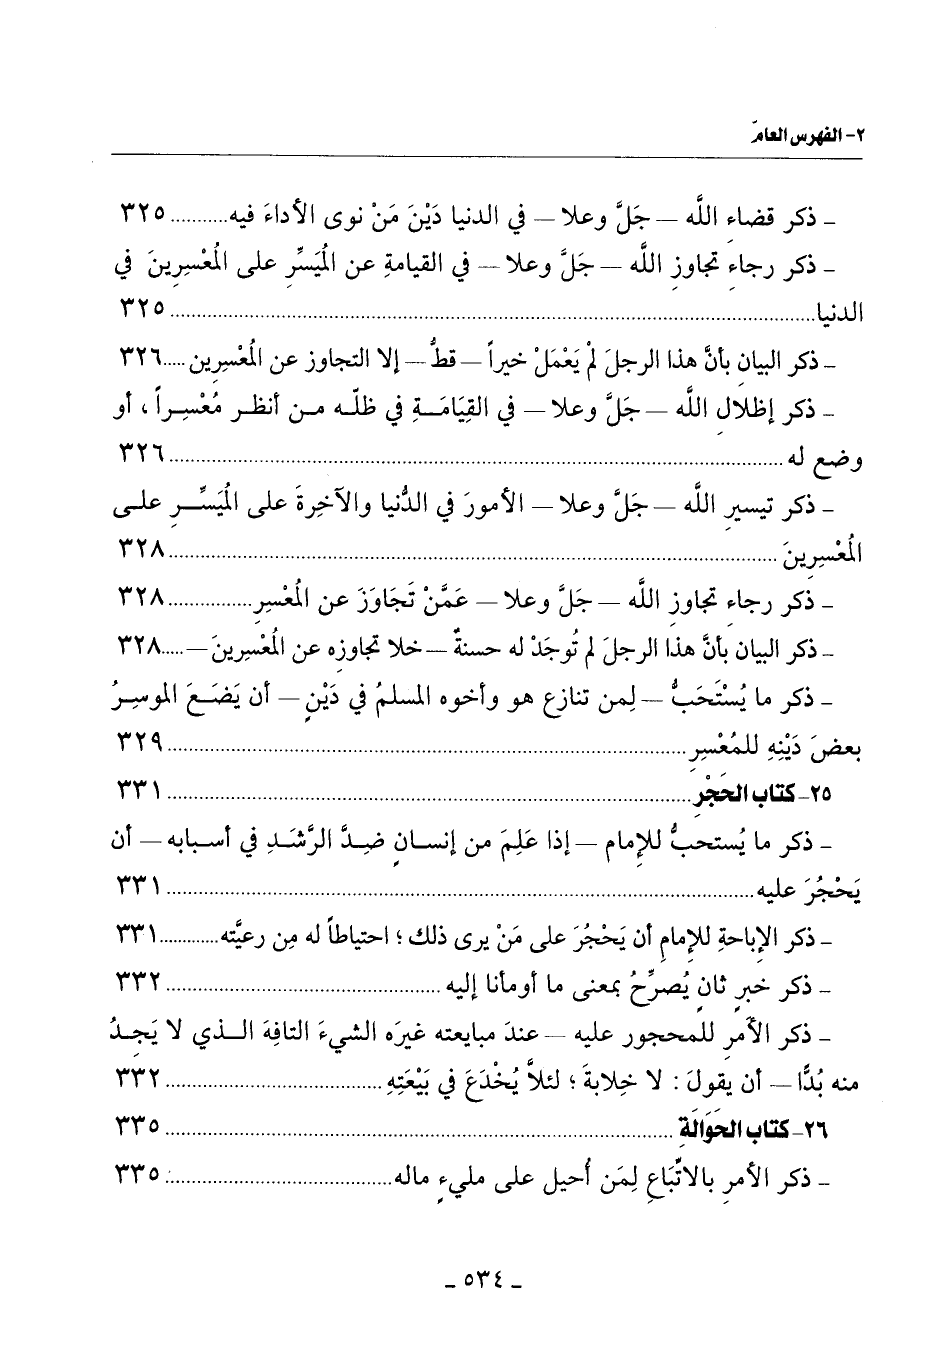 ٢- الفهرس العامّ
- ذكر قضاء اللَّه – جَلَّ وعلا – في الدنيا دَيْنَ مَنْ نوى الأداءَ فيه........... ٣٢٥
- ذكر رجاءِ تجاوزِ اللَّه – جَلَّ وعلا – في القيامةِ عن المُيَسِّرِ على المُعْسِرِينَ في
الدنيا........................................................................ ٣٢٥
- ذكر البيان بأنَّ هذا الرجلَ لَمْ يَعْمَلْ خيراً – قطُّ – إلا التجاوز عن المُعْسِرِين..... ٣٢٦
- ذكر إظلالِ اللَّه – جَلَّ وعلا – في القِيَامَةِ في ظلّه من أنظر مُعْسِراً، أو
وضع له ........................................................................ ٣٢٦
- ذكر تيسيرِ اللَّه – جَلَّ وعلا – الأمورَ في الدُّنيا والآخِرةَ على المُيَسِّرِ على
المُعْسِرِينَ ........................................................................ ٣٢٨
- ذكر رجاءِ تجاوزِ اللَّه – جَلَّ وعلا – عَمَّنْ تَجَاوَزَ عن المُعْسِرِ................ ٣٢٨
- ذكر البيان بأنَّ هذا الرجلَ لم تُوجَدْ له حسنةٌ – خلا تجاوزِه عن المُعْسِرِينَ –..... ٣٢٨
- ذكر ما يُسْتَحَبُّ – لِمن تنازع هو وأخوه المسلمُ في دَيْنٍ – أن يَضَعَ الموسِرُ
بعضَ دَيْنِهِ للمُعْسِرِ ........................................................................ ٣٢٩
٢٥- كتاب الحَجْرِ ........................................................................ ٣٣١
- ذكر ما يُستحبُّ للإمامِ – إذا عَلِمَ من إنسانٍ ضِدَّ الرَّشَدِ في أسبابه – أن
يَحْجُرَ عليه ........................................................................ ٣٣١
- ذكر الإباحةِ للإمامِ أن يَحْجُرَ على مَنْ يرى ذلك؛ احتياطاً له مِن رعيَّته............ ٣٣١
- ذكر خبرٍ ثانٍ يُصرِّحُ بمعنى ما أومأنا إليه ........................................ ٣٣٢
- ذكر الأمرِ للمحجورِ عليه – عندَ مبايعته غيرَه الشيءَ التافِهَ الذي لا يَجِدُ
منه بُدًّا – أن يقولَ: لا خِلابةَ؛ لئلاَّ يُخْدَعَ في بَيْعَتِهِ................................ ٣٣٢
٢٦- كتاب الحَوَالَةِ ........................................................................ ٣٣٥
- ذكر الأمرِ بالاتِّبَاعِ لِمَن أُحيل على مليءٍ ماله................................ ٣٣٥
- ٥٣٤ -